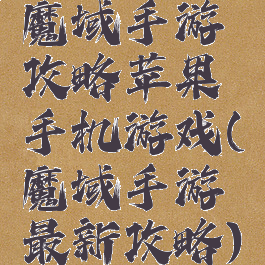 魔域手游
攻略苹果
手机游戏(
魔域手游
最新攻略)